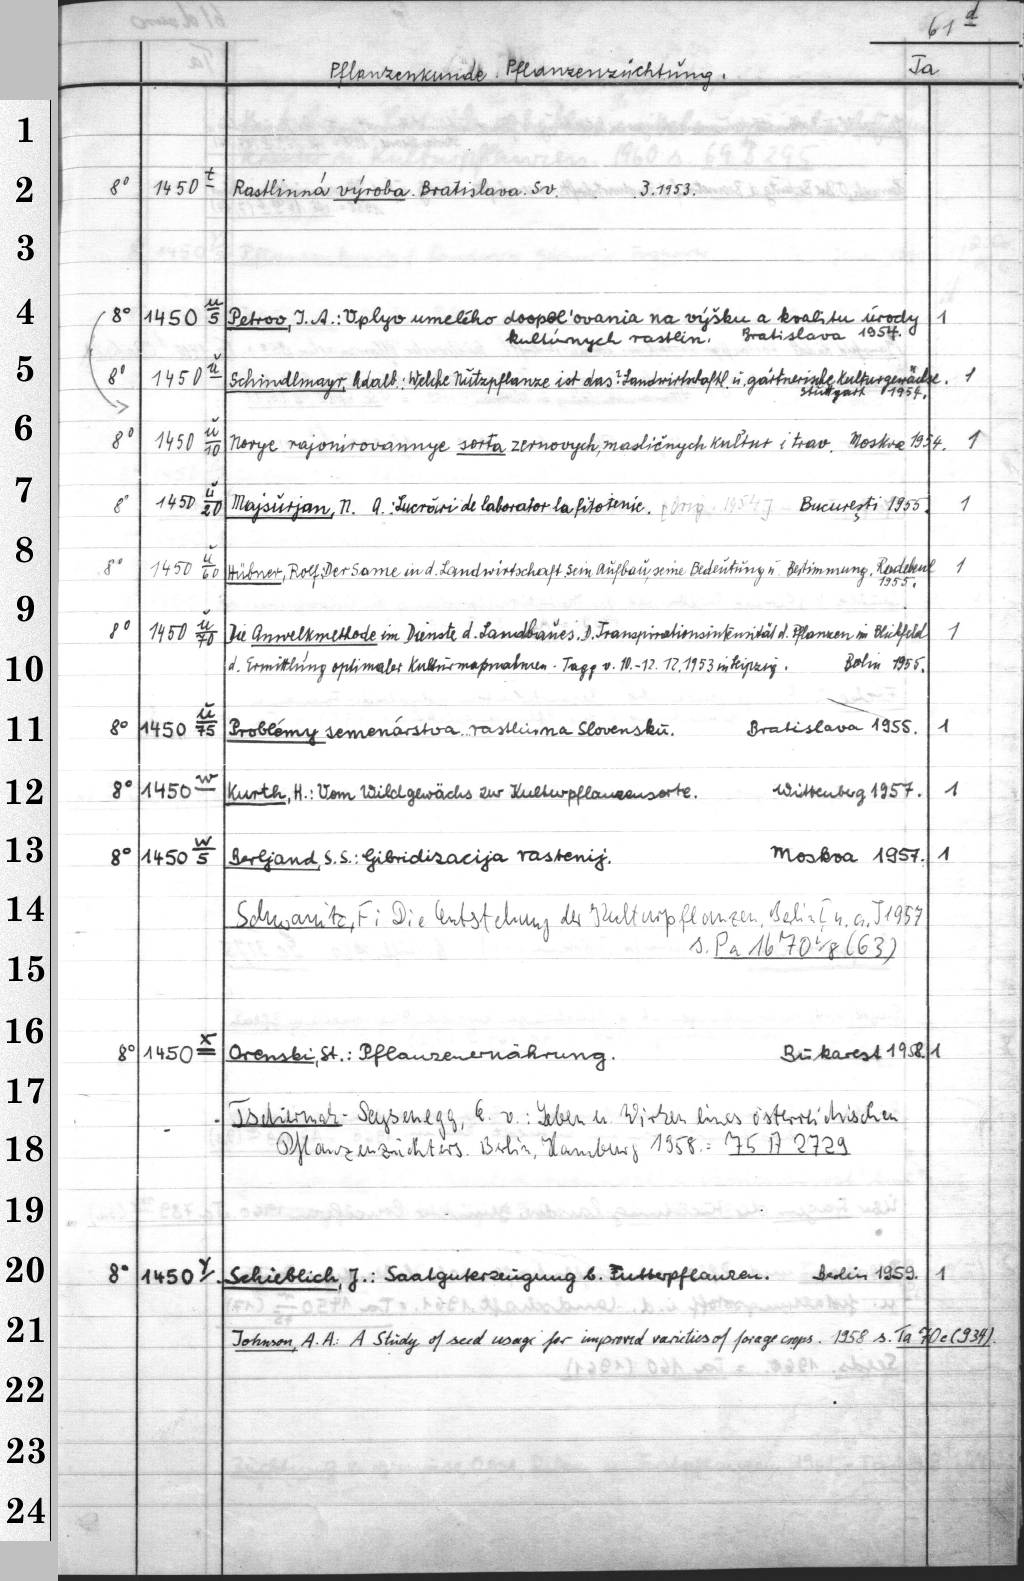 61 d
Pflanzenkunde. Pflanzenzüchtung. Ta
1
2 8° 1450 t Rastlinná výroba. Bratislava. Sv. 3.1953.
3
4 8° 1450 u/5 Petrov, I.A.: Vplyv umelého doopeľovania na výšku a kvalitu úrody 1
kultúrnych rastlin. Bratislava 1954.
5 8° 1450 ŭ Schindlmayr, Adalb.: Welche Nutzpflanze ist das? Landwirtschaftl. u. gärtnerische Kulturgewächse. 1
Stuttgart 1954.
6 8° 1450 ŭ/10 Novye rajonirovannye sorta zernovych, masličnych kul'tur i trav. Moskva 1954. 1
7 8° 1450 ŭ/20 Majsurjan, N. A.: Lucrări de laborator la fitotenie. [Orig. 1954] București 1955. 1
8 8° 1450 ŭ/60 Hübner, Rolf: Der Same in d. Landwirtschaft. Sein Aufbau, seine Bedeutung u. Bestimmung. Radebeul 1
1955.
9 8° 1450 ŭ/70 Die Anwelkmethode im Dienste d. Landbaues. D. Transpirationsintensität d. Pflanzen im Blickfeld 1
10 d. Ermittlung optimaler Kulturmaßnahmen. Tagg v. 10.-12. 12. 1953 in Leipzig. Berlin 1955.
11 8° 1450 ŭ/75 Problémy semenárstva rastlin na Slovensku. Bratislava 1955. 1
12 8° 1450 w Kurth, H.: Vom Wildgewächs zur Kulturpflanzensorte. Wittenberg 1957. 1
13 8° 1450 w/5 Berljand, S.S.: Gibridizacija rastenij. Moskva 1957. 1
14 Schwanitz, F: Die Entstehung der Kulturpflanzen. Berlin [u.a.] 1957
15 s. Pa 1670 i/8 (63)
16 8° 1450 x Orenski, St.: Pflanzenernährung. Bukarest 1958. 1
17 Tschermak-Seysenegg, E. v.: Leben u. Wirken eines österreichischen
18 Pflanzenzüchters. Berlin, Hamburg 1958.= 75 A 2729
19
20 8° 1450 y. Schieblich, J.: Saatguterzeugung b. Futterpflanzen. Berlin 1959. 1
21 Johnson, A.A: A Study of seed usage for improved varieties of forage crops. 1958 s. Ta 70c (934).
22
23
24